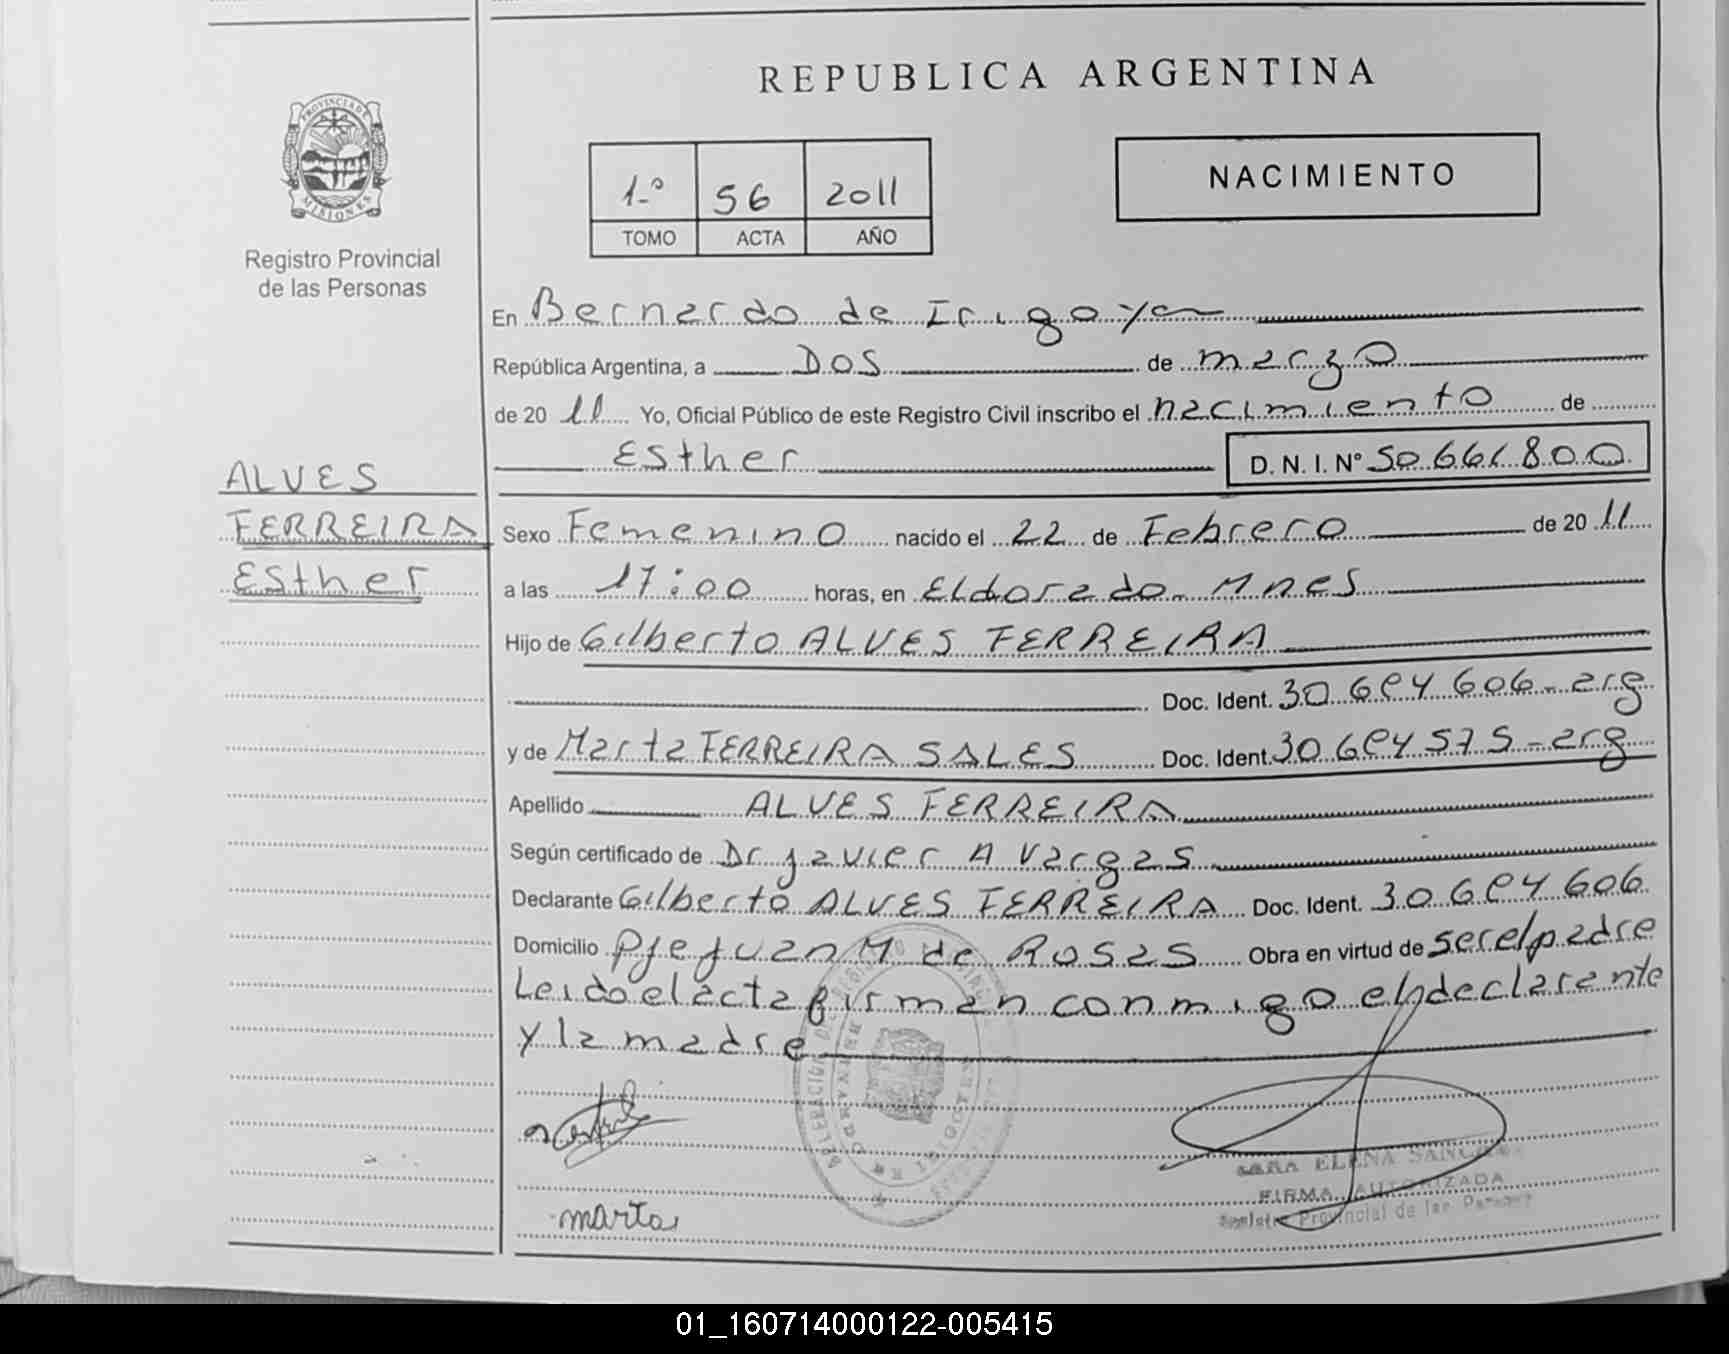 REPUBLICA ARGENTINA
PROVINCIA DE MISIONES
Registro Provincial
de las Personas
1º 56 2011
TOMO ACTA AÑO
NACIMIENTO
En Bernardo de Irigoyen
República Argentina, a DOS de marzo
de 2011 Yo, Oficial Público de este Registro Civil inscribo el nacimiento de
Esther D.N.I. Nº 50.661.800
ALVES
FERREIRA
Esther
Sexo Femenino nacido el 22 de Febrero de 2011
a las 17:00 horas, en Eldorado Mnes
Hijo de Gilberto ALVES FERREIRA
Doc. Ident. 606-arg
y de Marta FERREIRA SALES Doc. Ident. 575-arg
Apellido ALVES FERREIRA
Según certificado de Dr Javier A Vargas
Declarante Gilberto ALVES FERREIRA Doc. Ident. 606
Domicilio Pje Juan M de Rosas Obra en virtud de ser el padre
Leido el acta firman conmigo el declarante
y la madre
marta
ELENA
FIRMA AUTORIZADA
Registro Provincial de las Personas
01_160714000122-005415